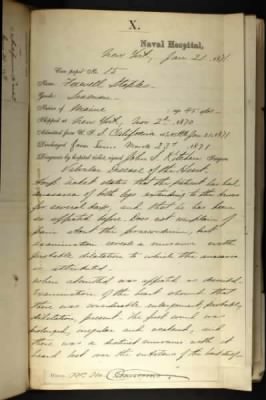 X.
Naval Hospital,
New York, Jan 21 1871
Case paper No. 15
Name Foxwell Staples
Grade Seaman
Native of Maine age 45
Shipped at New York, Nov 2nd 1870
Admitted from U. S. S. California Jan 21 1871
Discharged from same March 23rd 1871
Diagnosis by hospital ticket, signed John S. Kitchen Surgeon
Valvular Disease of the Heart.
Hosp. ticket states that the patient has had
of both legs extending to the knees
for several days, and that he has been
so affected before. Does not complain of
pain about the but
examination reveals a murmur with
probable dilatation to which the
is attributed.
When admitted was affected as described.
Examination of the heart showed that
there was considerable enlargement, probably
dilatation, present. The first sound was
prolonged, irregular and weakened, and
there was a distinct murmur with it
heard best over the